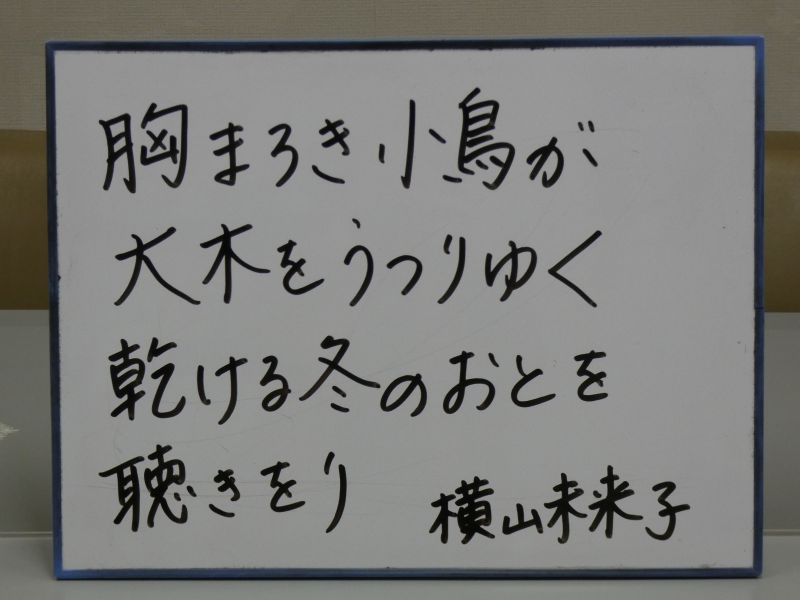 胸まろき小鳥が
大木をうつりゆく
乾ける冬のおとを
聴きをり
横山未来子